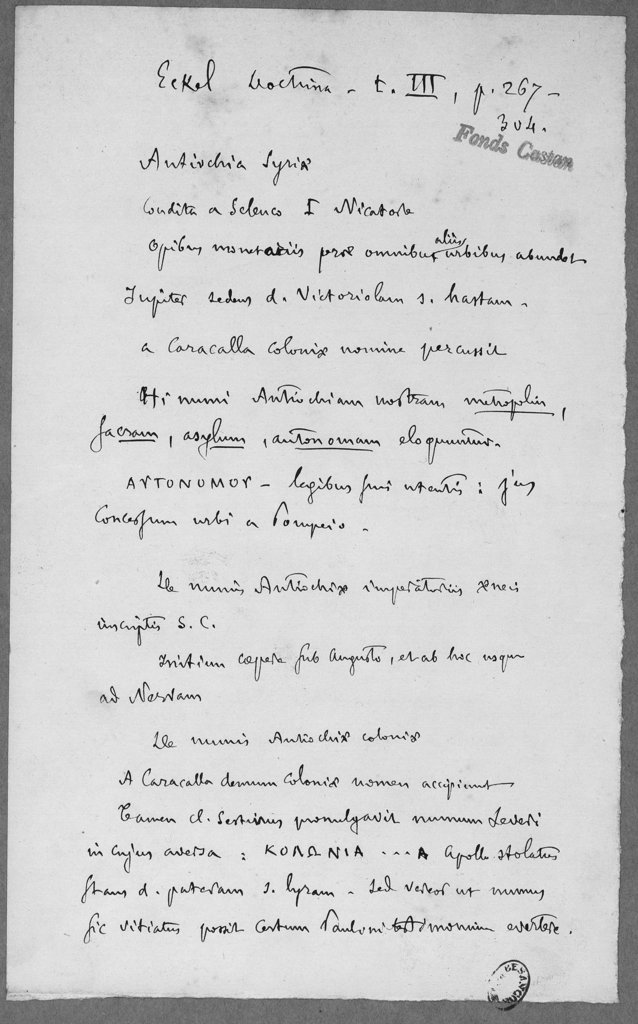 Eckel Doctrina - t. III, p. 267-
304.
Fonds Castan
Antiochia Syriæ
Condita a Seleuco I Nicatore
Opibus monetariis præ omnibus aliis urbibus abundat
Jupiter sedens d. Victoriolam s. hastam -
a Caracalla coloniæ nomine percussit
Hi numi Antiochiam nostram metropolin,
sacram, asylum, autonomam eloquuntur.
AVTONOMOY - legibus suis utentis : jus
Concessum urbi a Pompeio -
De numis Antiochiæ imperatoriis æneis
inscriptis S. C.
Initium cæpere sub Augusto, et ab hoc usque
ad Nervam
De numis Antiochiæ coloniæ
A Caracalla demum Coloniæ nomen accipiunt
Tamen cl. Sestinus promulgavit numum Severi
in cujus aversa : ΚΟΛΩΝΙΑ ... A Apollo stolatus
stans d. pateram s. lyram - Sed vereor ut numus
sic vitiatus possit certum Paulini testimonium evertere.
BESANÇON